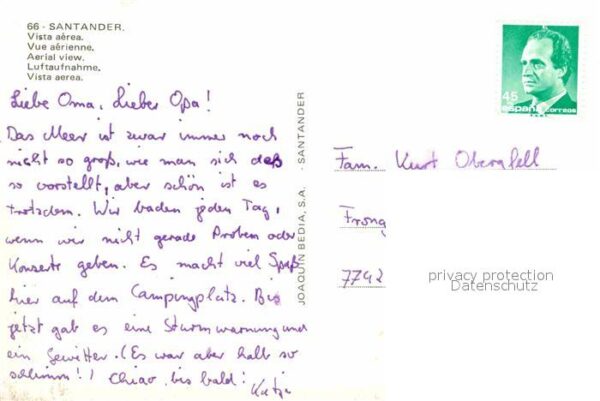 66 - SANTANDER.
Vista aérea.
Vue aérienne.
Aerial view.
Luftaufnahme.
Vista aerea.
Liebe Oma, Lieber Opa!
Das Meer ist zwar immer noch
nicht so groß, wie man sich daß
so vorstellt, aber schön ist es
trotzdem. Wir baden jeden Tag,
wenn wir nicht gerade Proben oder
Konzerte geben. Es macht viel Spaß
hier auf dem Campingplatz. Bis
jetzt gab es eine Sturmwarnung und
ein Gewitter. (Es war aber halb so
schlimm!) Chiao, bis bald!
Katja
JOAQUIN BEDIA, S.A. - SANTANDER
45
españa correos
Fam. Kurt
Frong
7742
privacy protection
Datenschutz